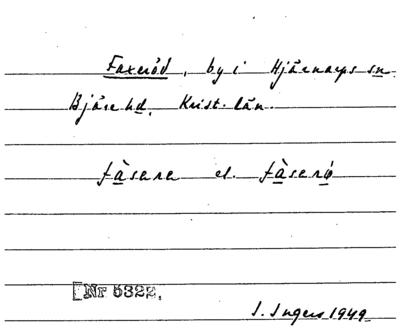 Faxeröd, by i Hjärnarps sn.
Bjäre hd, Krist. län.
fàsara el. fàsarø
[Nr 5322.
I. Ingers 1949